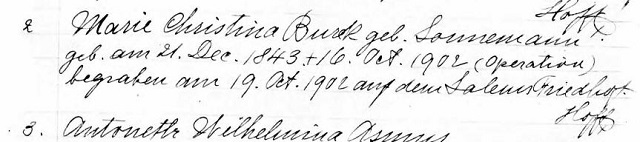 Hoff
2 Marie Christina Burk geb. Sonnemann.
geb. am 21. Dec. 1843 + 16. Oct. 1902 (Operation)
begraben am 19. Oct. 1902 auf dem Salems Friedhof.
Hoff
3. Antonette Wilhelmina Asmus